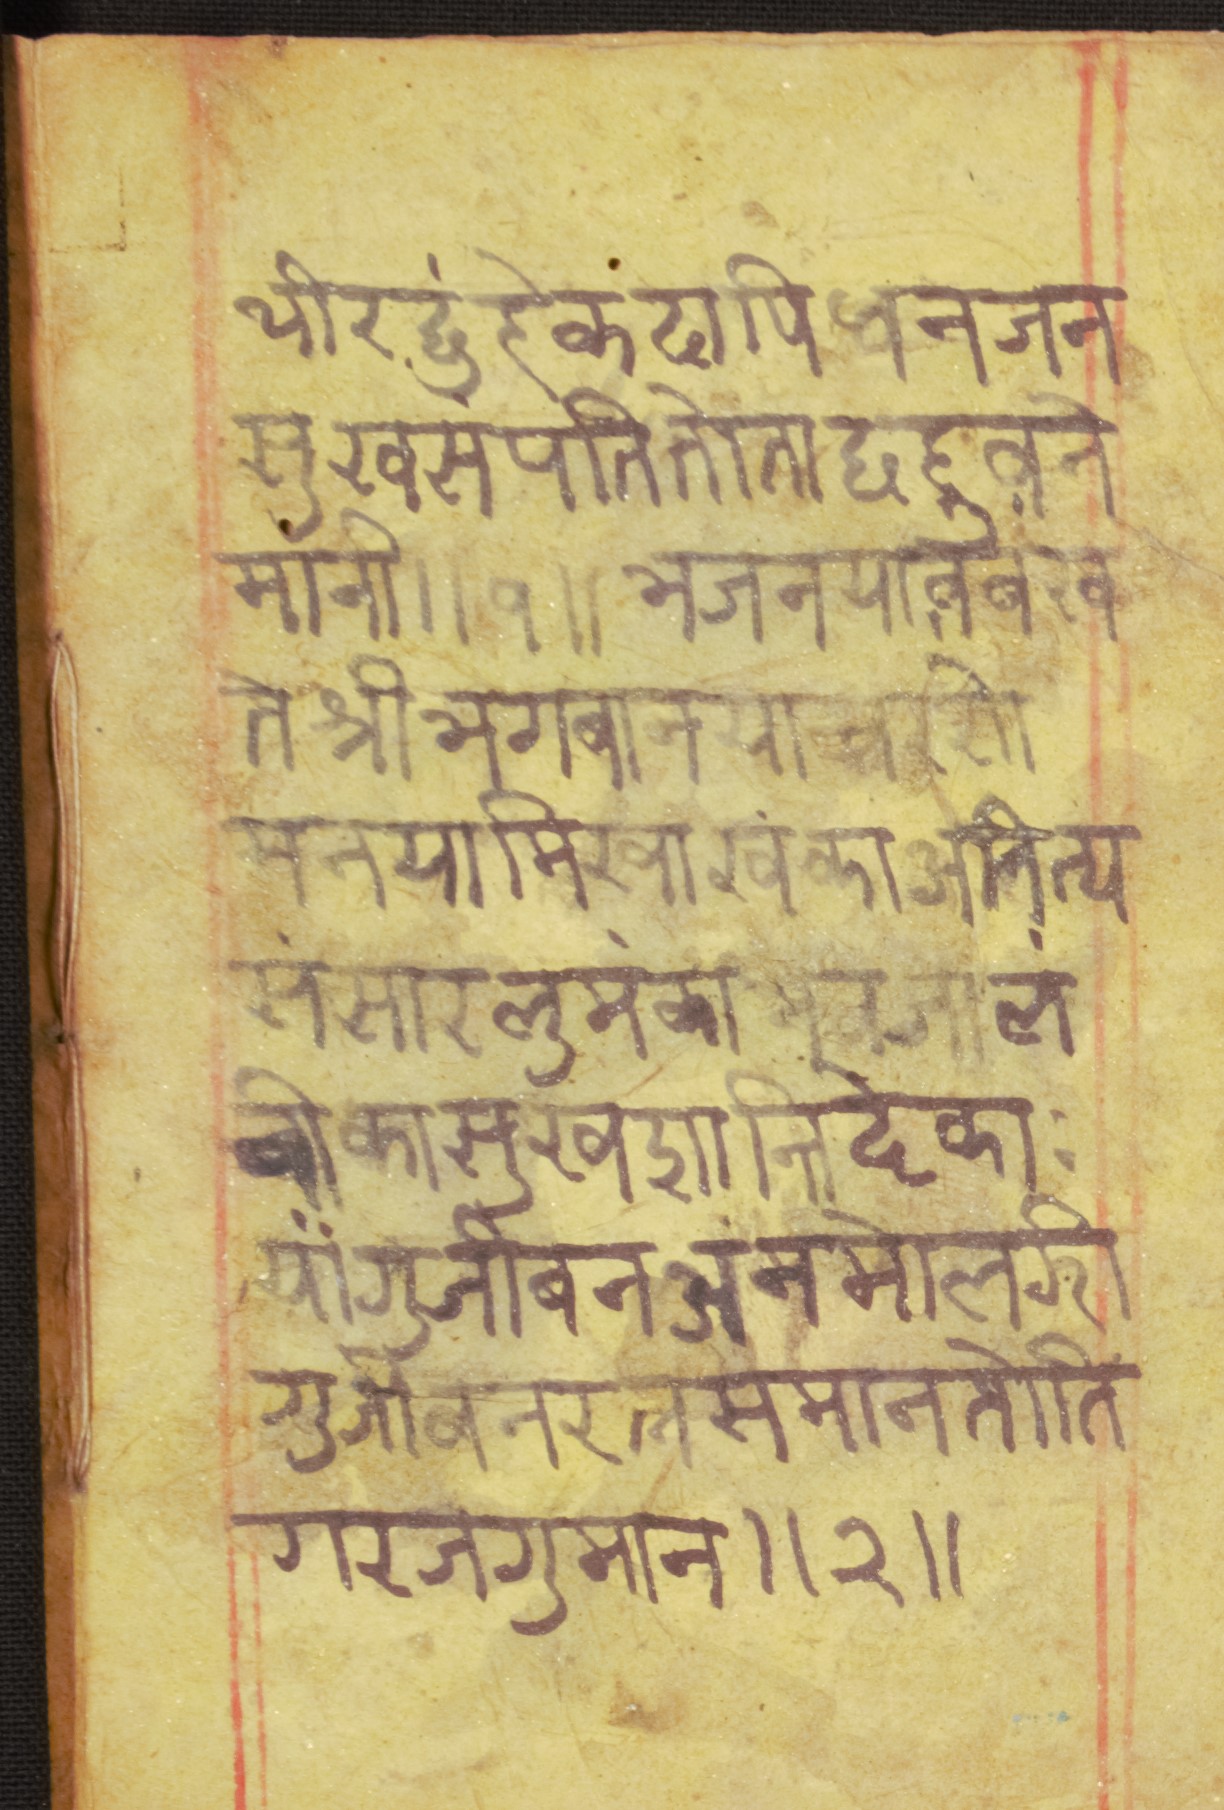 थीरदुंहेकंदापि धनजन
सुखसंपतितोताछहुत़ने
मांनी॥१॥ भजनयात़बखं
तेश्रीभगबानया
मनयामिखाखंकाअनित्य
संसारलुमंका भवजालं
बीकासुखशानिदेका
यांगुजीबनअंनमोल
गुजीबनरत्नसमानतोति
गरजगुमान॥२॥